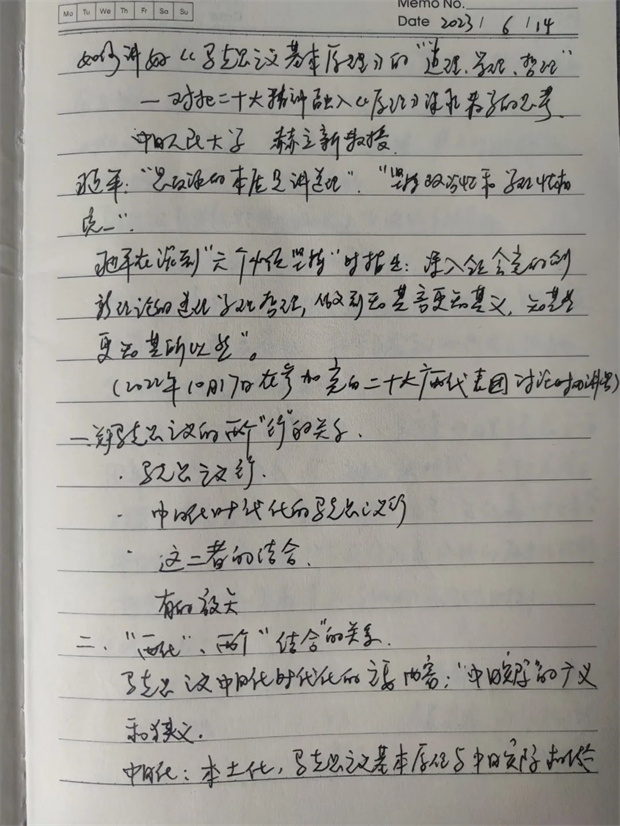 Mo Tu We Th Fr Sa Su
Memo No.
Date 2023 / 6 / 14
如何讲好《马克思主义基本原理》的“道理、学理、哲理”
—对把二十大精神融入《原理》课程教学的思考
中国人民大学 郝立新教授
“思政课的本质是讲道理”。“坚持政治性和学理性相
统一”。
在谈到“六个必须坚持”时指出：深入领会党的创
新理论的道理学理哲理，做到知其言更知其义，知其然
更知其所以然”。
(2022年10月17日在参加党的二十大广西代表团讨论时的讲话)
一、关于马克思主义的两个“行”的关系．
· 马克思主义行．
· 中国化时代化的马克思主义行
· 这二者的结合．
有的放矢
二、“两化”、两个“结合”的关系．
马克思主义中国化时代化的主要内容：“中国实际”的广义
和狭义．
中国化：本土化，马克思主义基本原理与中国实际相结